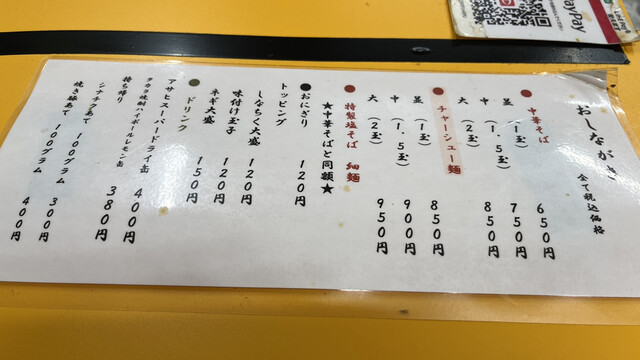 おしながき 全て税込価格
●中華そば
並 (1玉) 650円
中 (1.5玉) 750円
大 (2玉) 850円
●チャーシュー麺
並 (1玉) 850円
中 (1.5玉) 900円
大 (2玉) 950円
●特製塩そば 細麺
★中華そばと同額★
●おにぎり 120円
トッピング
しなちく大盛 120円
味付け玉子 120円
ネギ大盛 150円
●ドリンク
アサヒスーパードライ缶 400円
タカラ焼酎ハイボールレモン缶 380円
持ち帰り
シナチクあて 100グラム 300円
焼き豚あて 100グラム 400円
PayPay